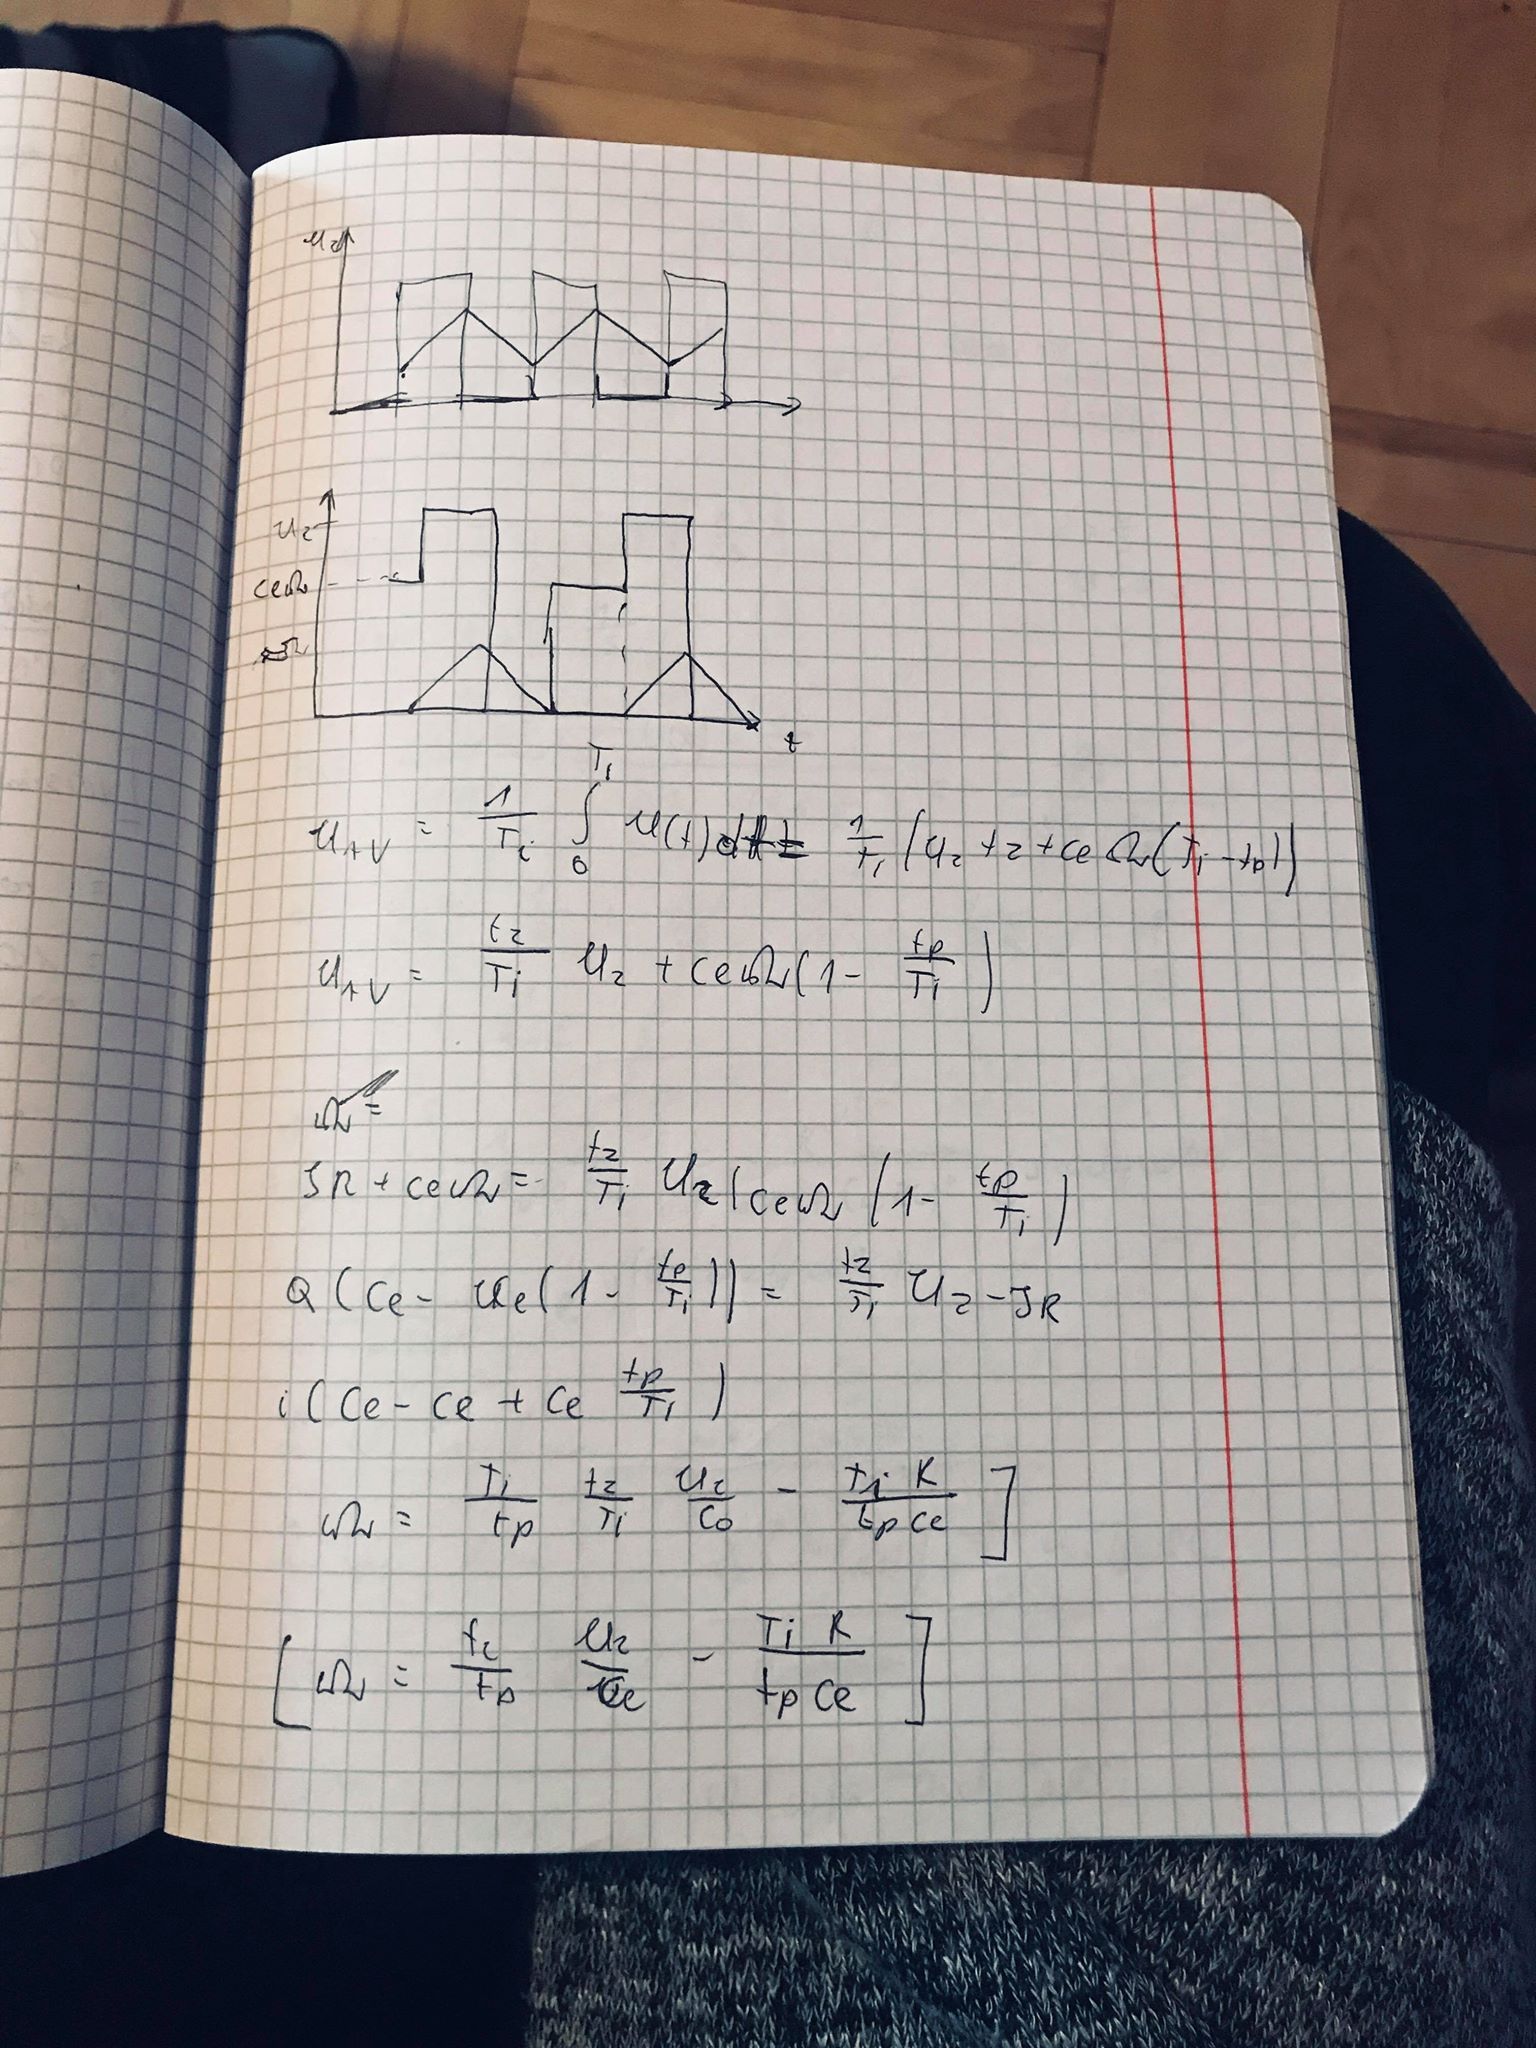 u₂
u₂
ceΩ
t
u_AV = 1/Ti ∫₀^T₁ u(t)dt = 1/t₁ (u₂ t₂ + ce Ω(Ti - tp))
u_AV = t₂/Ti u₂ + ceΩ(1 - tp/Ti)
Ω =
JR + ceΩ = t₂/Ti U₂ + ceΩ (1 - tp/Ti)
Ω (Ce - Ce(1 - tp/Ti)) = t₂/Ti U₂ - JR
i (Ce - Ce + Ce tp/Ti)
Ω = Ti/tp t₂/Ti U₂/Co - Ti R/tp Ce ]
[ Ω = t₂/tp U₂/Ce - Ti R/tp Ce ]